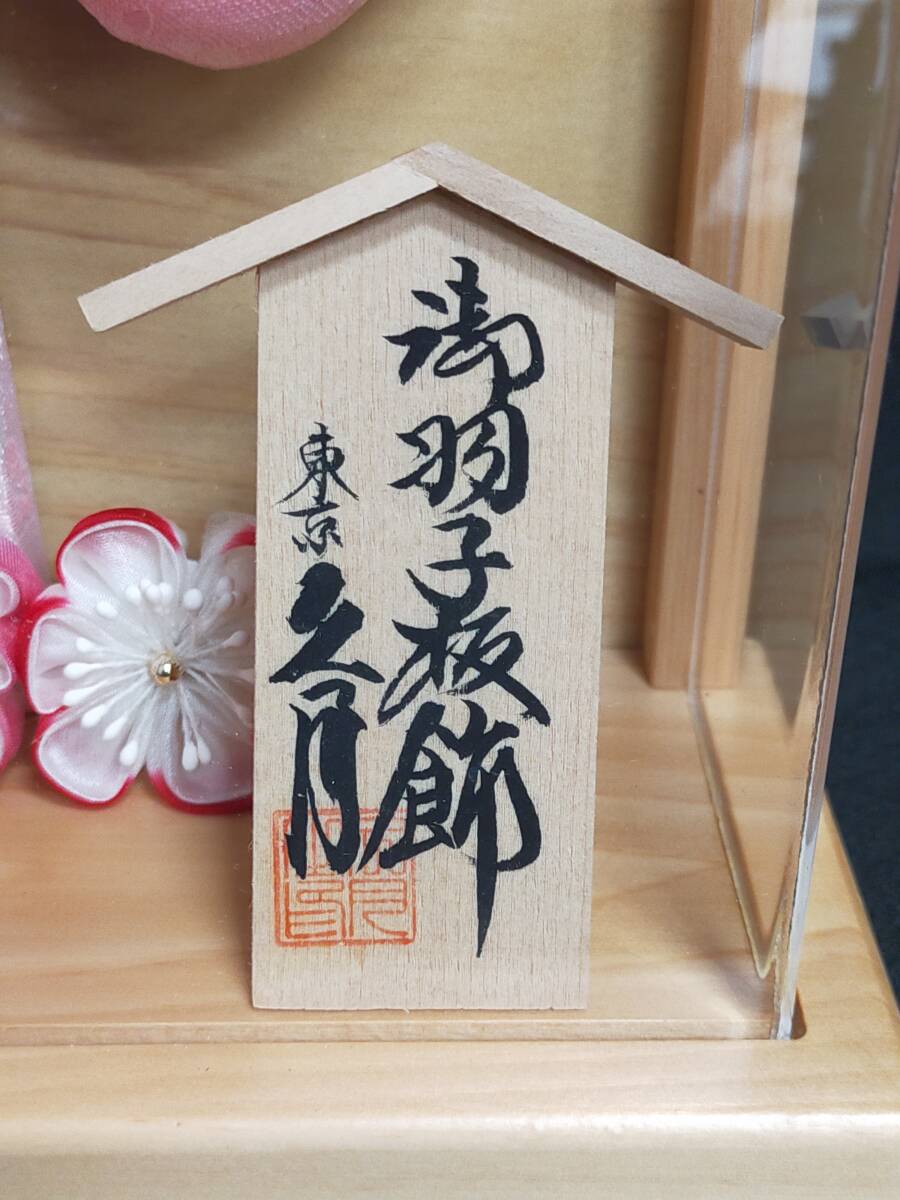 御羽子板飾
東京久月